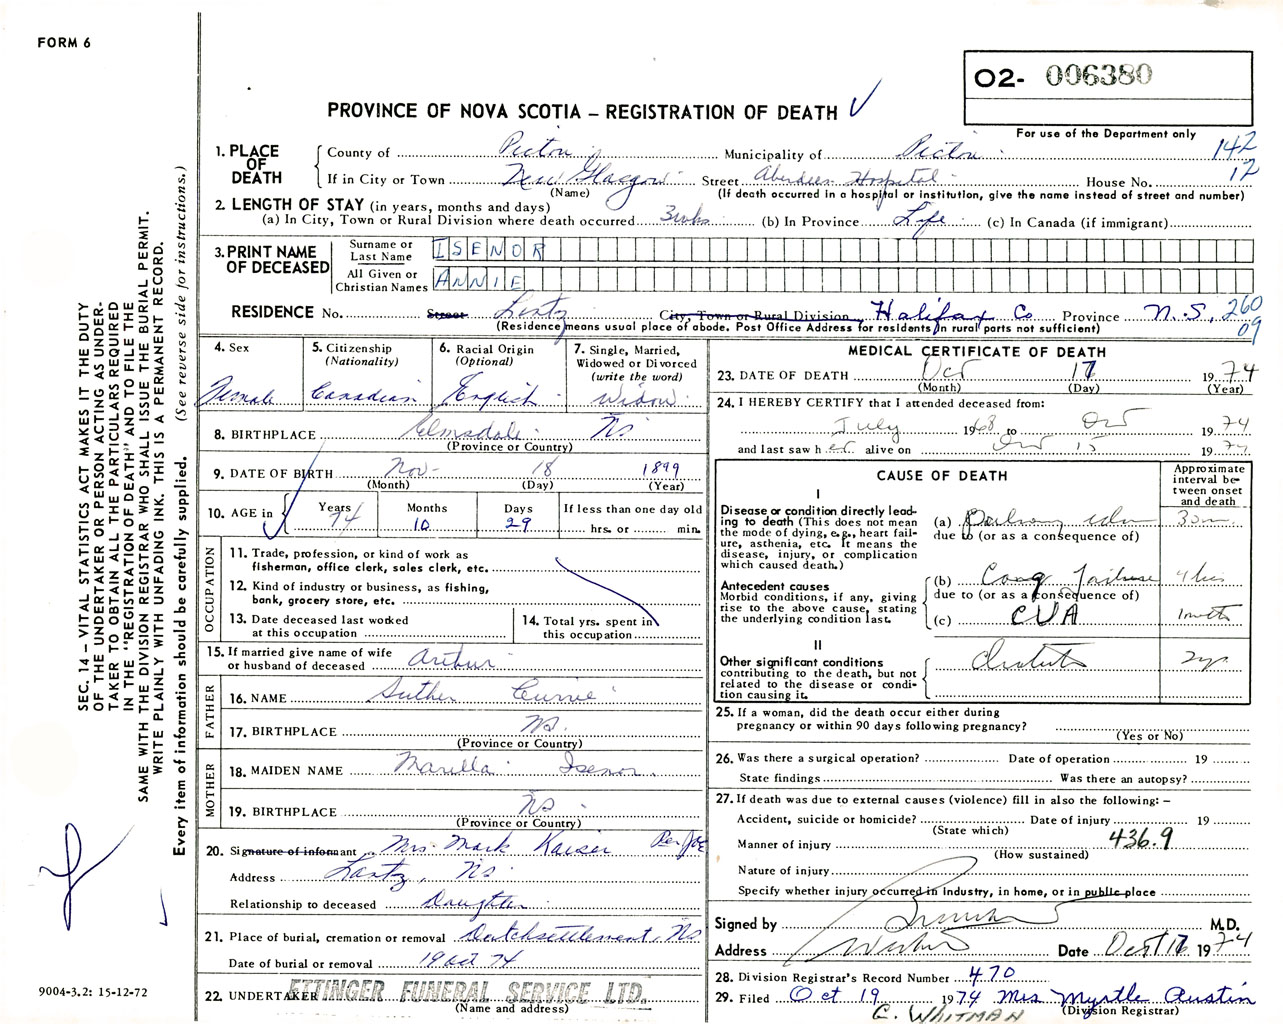 FORM 6
O2- 006380
PROVINCE OF NOVA SCOTIA – REGISTRATION OF DEATH
For use of the Department only
142
12
1. PLACE OF DEATH
County of Pictou Municipality of Pictou
If in City or Town New Glasgow Street Aberdeen Hospital House No.
(Name) (If death occurred in a hospital or institution, give the name instead of street and number)
2. LENGTH OF STAY (in years, months and days)
(a) In City, Town or Rural Division where death occurred 3 wks (b) In Province Life (c) In Canada (if immigrant)
3. PRINT NAME OF DECEASED
Surname or Last Name ISENOR
All Given or Christian Names ANNIE
RESIDENCE No. Street Lantz City, Town or Rural Division Halifax Co Province N.S.
260
09
(Residence means usual place of abode. Post Office Address for residents in rural parts not sufficient)
4. Sex
Female
5. Citizenship (Nationality)
Canadian
6. Racial Origin (Optional)
English
7. Single, Married, Widowed or Divorced (write the word)
Widow
8. BIRTHPLACE Elmsdale NS
(Province or Country)
9. DATE OF BIRTH Nov- 18 1899
(Month) (Day) (Year)
10. AGE in
Years 74
Months 10
Days 29
If less than one day old
hrs. or min.
OCCUPATION
11. Trade, profession, or kind of work as
fisherman, office clerk, sales clerk, etc.
12. Kind of industry or business, as fishing,
bank, grocery store, etc.
13. Date deceased last worked
at this occupation
14. Total yrs. spent in
this occupation
15. If married give name of wife
or husband of deceased Arthur
FATHER
16. NAME Luther Currie
17. BIRTHPLACE NS.
(Province or Country)
MOTHER
18. MAIDEN NAME Marilla Isenor
19. BIRTHPLACE NS
(Province or Country)
20. Signature of informant Mrs. Mark Kaiser
Address Lantz, NS
Relationship to deceased Daughter
21. Place of burial, cremation or removal Dutchsettlement, NS
Date of burial or removal 19 Oct 74
22. UNDERTAKER ETTINGER FUNERAL SERVICE LTD.
(Name and address)
MEDICAL CERTIFICATE OF DEATH
23. DATE OF DEATH Oct 17 1974
(Month) (Day) (Year)
24. I HEREBY CERTIFY that I attended deceased from:
July 1968 to Oct 1974
and last saw her alive on Oct 15 1974
CAUSE OF DEATH
Approximate interval between onset and death
I
Disease or condition directly leading to death (This does not mean the mode of dying, e.g., heart failure, asthenia, etc. It means the disease, injury, or complication which caused death.)
(a)
due to (or as a consequence of)
Antecedent causes
Morbid conditions, if any, giving rise to the above cause, stating the underlying condition last.
(b) Cong Failure
due to (or as a consequence of)
(c) CVA 1 mth
II
Other significant conditions
contributing to the death, but not related to the disease or condition causing it.
25. If a woman, did the death occur either during
pregnancy or within 90 days following pregnancy?
(Yes or No)
26. Was there a surgical operation? Date of operation 19
State findings Was there an autopsy?
27. If death was due to external causes (violence) fill in also the following: –
Accident, suicide or homicide? Date of injury 19
(State which)
436.9
Manner of injury
(How sustained)
Nature of injury
Specify whether injury occurred in industry, in home, or in public place
Signed by M.D.
Address Date Oct 17 1974
28. Division Registrar's Record Number 470
29. Filed Oct 19 1974 Mrs Myrtle Austin
(Division Registrar)
C. WHITMAN
SEC. 14 – VITAL STATISTICS ACT MAKES IT THE DUTY
OF THE UNDERTAKER OR PERSON ACTING AS UNDER-
TAKER TO OBTAIN ALL THE PARTICULARS REQUIRED
IN THE "REGISTRATION OF DEATH" AND TO FILE THE
SAME WITH THE DIVISION REGISTRAR WHO SHALL ISSUE THE BURIAL PERMIT.
WRITE PLAINLY WITH UNFADING INK. THIS IS A PERMANENT RECORD.
Every item of information should be carefully supplied. (See reverse side for instructions.)
9004-3.2: 15-12-72